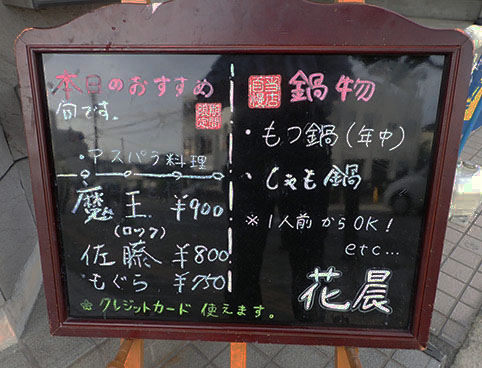 本日のおすすめ
旬です。
期間限定
・アスパラ料理
魔王 ¥900
(ロック)
佐藤 ¥800
もぐら ¥750
☆クレジットカード使えます。
当店自慢
鍋物
・もつ鍋(年中)
・しゃも鍋
※1人前からOK!
etc...
花晨